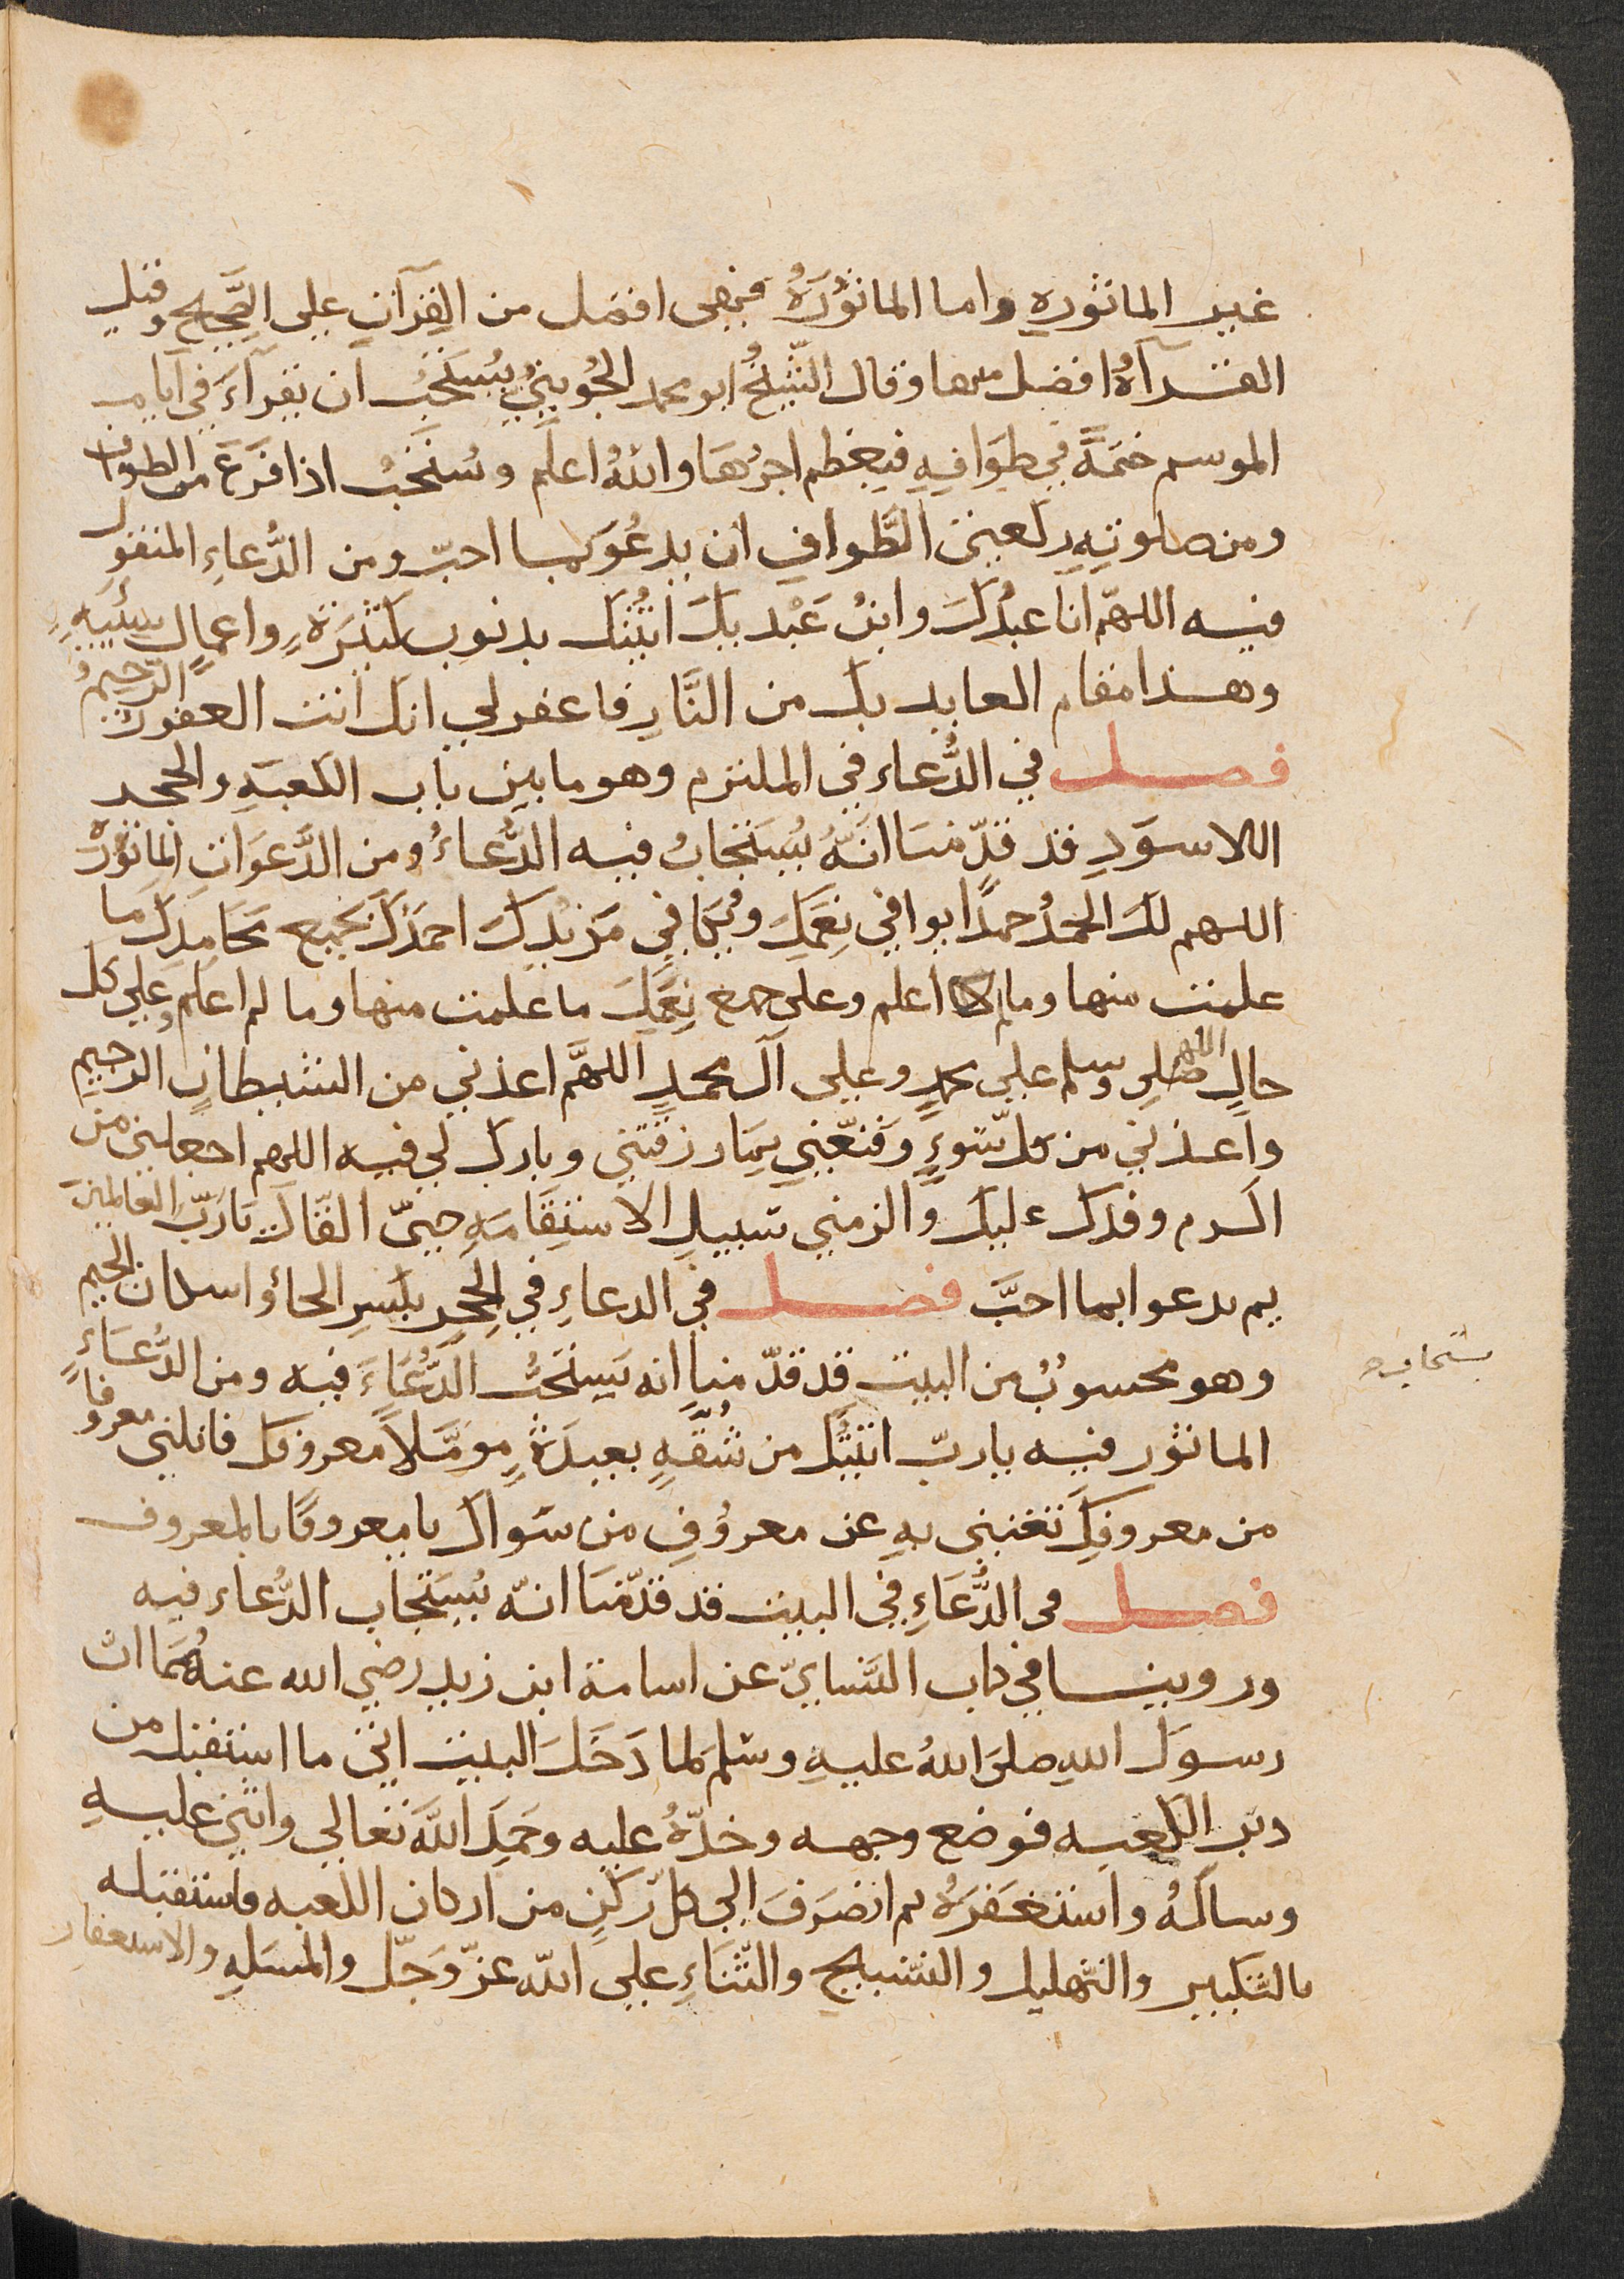 غير الماثوره واما الماثُوْرَةُ فهى افضل من القرآن على الصَّحِيح وقيل
القرآةُ افضل منها وقال الشَّيْخُ ابو محمد الجُويْنيُّ يُسْتَحَبُّ ان يقرآءَ في آيام
الموسم ختمَةً في طوَافِهِ فيعظم اجرُهَا واللهُ اعلم ويُسْتَحَبُّ اذا فَرَغَ من الطواف
ومن صلوتِهِ ركعتي الطَّوافِ ان يدعُوَ بما احبّ ومن الدُّعاءِ المنقول
فيه اللهمّ انا عبدُكَ وابنُ عَبْدَيكَ اتَيْتُك بذنوب كثيرَةٍ واعمالٍ سيئَةٍ
وهذا مقام العايد بك من النَّارِ فاغفرلي انك انت الغفور الرّحيمُ
فصل في الدُّعاء في الملتزم وهو ما بين باب الكعبةِ والحجر
الاسوَدِ قد قدّمنا انَّهُ يُسْتَجَابُ فيه الدُّعاءُ ومن الدَّعوَاتِ المأثورة
اللهم لكَ الحمدُ حمدًا يوافي نِعَمَكَ ويُكافي مَزيْدَكَ احمَدُكَ بجميع مَحَامِدِكَ ما
علمت منها وما لم اعلم وعلى جميع نِعَمِكَ ما علمت منها وما لم اعلم وعلى كل
حالٍ اللهم صلِ وسلم على محمدٍ وعلى آل محمدٍ اللهُمَّ اعذني من الشيطانِ الرجيم
واعذني من كل سوءٍ وَقنّعْني بِمَا رزقتني وبارك لي فيه اللهم اجعلني من
اكرم وفدك عليك والزمني سبيلَ الاستِقَامَةِ حتىّ القَاك يَارَبَّ العَالمين
ثم يدعوا بما احبَّ فصل في الدعاءِ في الحِجِر بكسرِ الحاءِ واسكان الجيم
وهو محسوبٌ من البيت قد قدّمنا انه يَستحَبُّ الدُّعَاءَ فيه ومن الدُّعَاءِ
يستجاب صح
الماثور فيه يا ربّ اتيْتُكَ من شُقّةٍ بعيدَةٍ مؤمِّلاً معروفَك فانلني معروفاً
من معروفِكَ تغنيني بهِ عن معروُفِ من سَواكَ يا معروفًا بالمعروف
فصل في الدُّعَاءِ في البيت قد قدّمنَا انّه يُسْتَجَاب الدُّعاء فيه
وروينا في كتاب النَّسايّ عن اسامة ابن زيد رضي الله عنهُمَا ان
رسولَ اللهِ صلى اللهُ عليهِ وسَلم لما دَخَلَ البيت اتى ما استقبل من
دبر الكعبه فوضع وجهه وخدّهُ عليه وحَمِدَ اللهَ تعالى واثنى عليهِ
وسالَهُ واستَغفَرَهُ ثم انصَرَفَ الي كل ركنٍ من اركان الكعبه فاستقبله
بالتكبير والتهليل والتسْبيح والثّنَاءِ على الله عزّ وَجَلّ والمسَلهِ والاستغفار